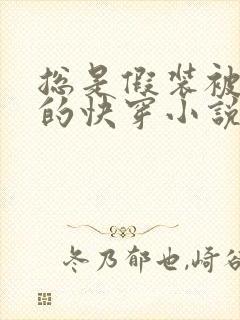 总是假装被
的快穿小说
冬乃郁也,崎谷